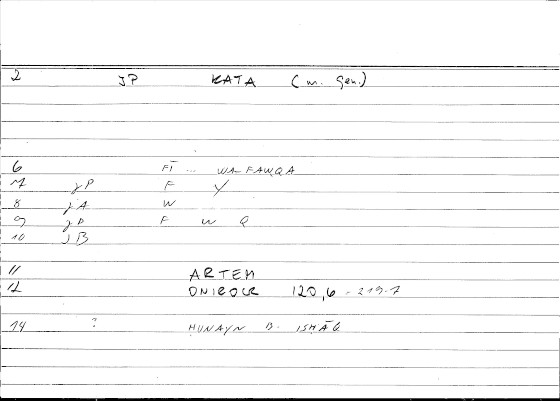 2 JP KATA (m. gen.)
6 FĪ ... WA-FAWQA
7 JP F Y
8 JA W
9 JP F W Q
10 JB
11 ARTEM
12 ONIROCR 120,6 - 219.7
14 ? HUNAYN B. ISHĀQ